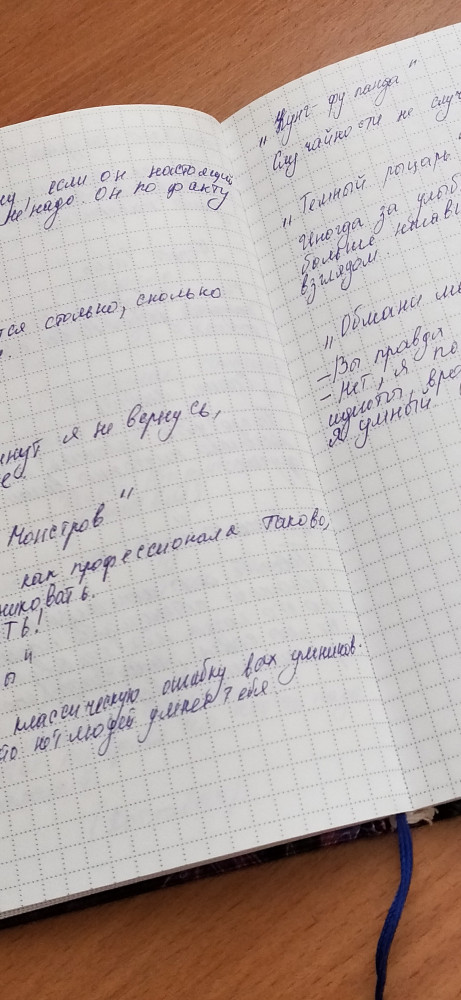 если он настоящий,
не надо. Он по факту
тся столько, сколько
е.
инут я не вернусь,
е.
Монстров"
как профессионала таково,
никовать.
ТЬ!
ы"
классическую ошибку всех умников.
то нет людей умнее тебя
"Кунг-фу панда"
Случайности не случ
"Темный рыцарь"
Иногда за улыб
больше
взглядом.
"Обмани ме
-Вы правда
-Нет, я по
идиоты, вро
я умный.